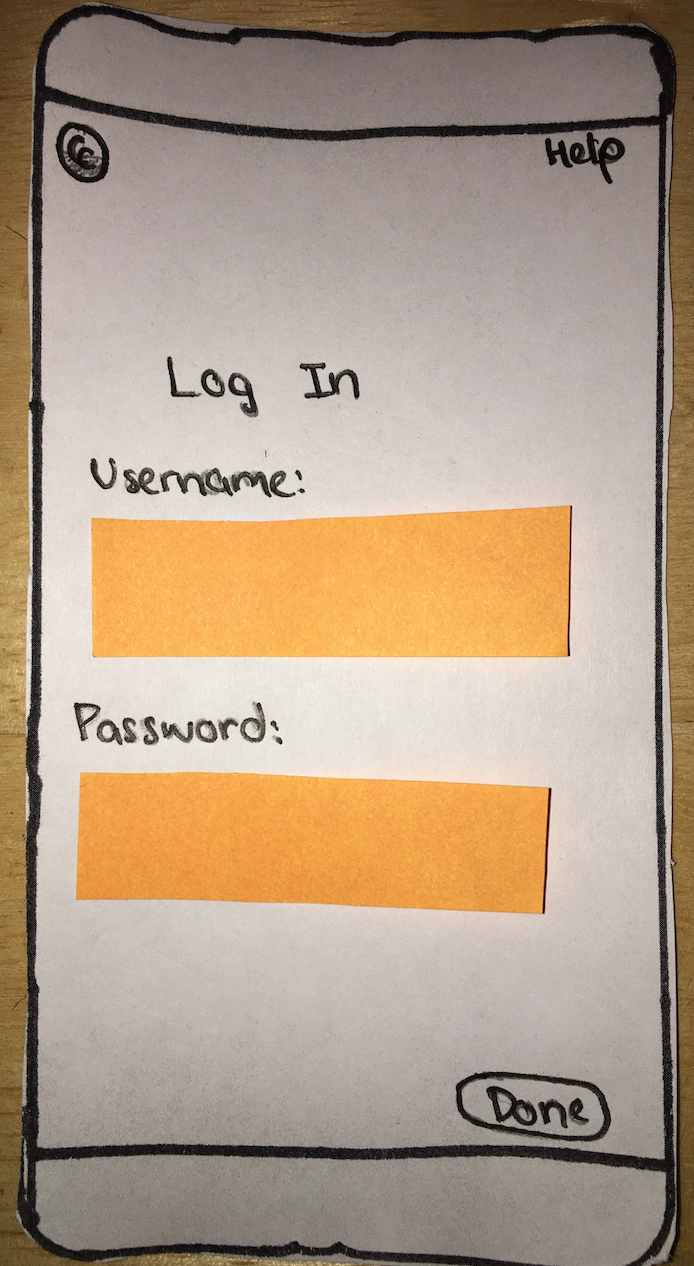 CC Help
Log In
Username:
Password:
Done